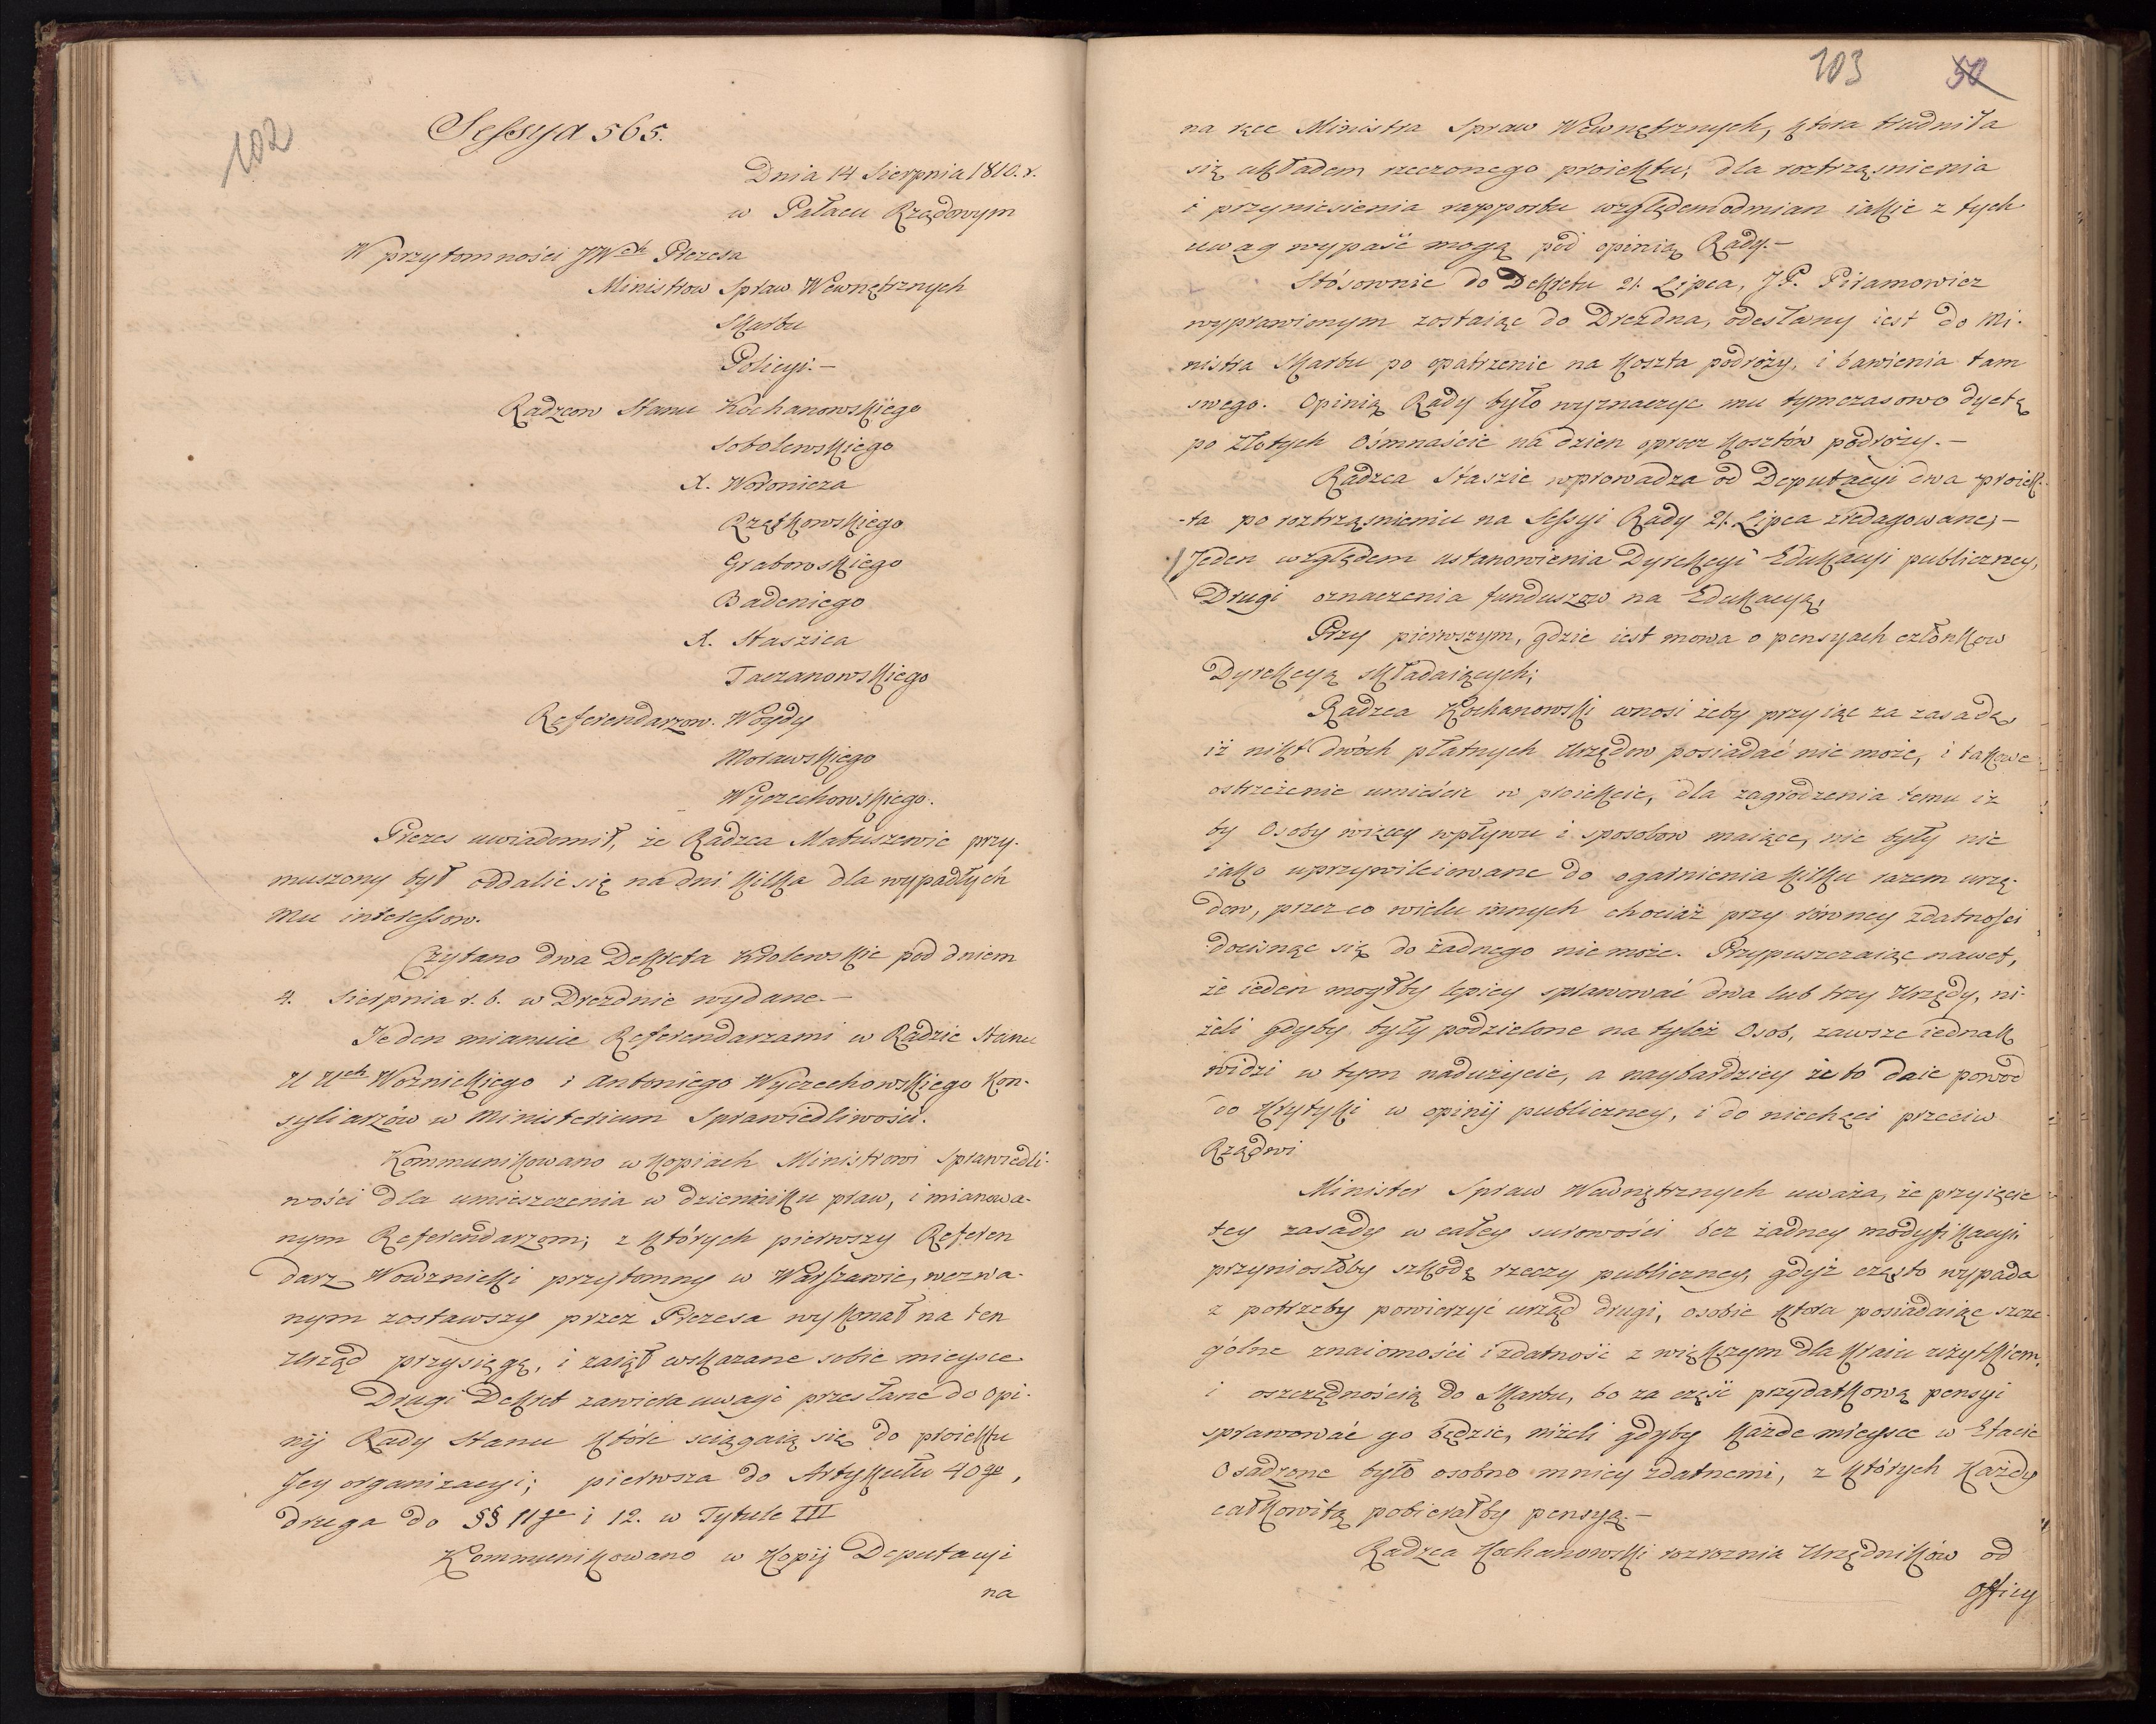 102
Sessya 565.
Dnia 14 Sierpnia 1810. r.
w Pałacu Rządowym
W przytomności JWch Prezesa
Ministrow Spraw Wewnętrznych
Skarbu
Policyi. –
Radzcow Stanu Kochanowskiego
Sobolewskiego
X. Woronicza
Rzętkowskiego
Grabowskiego
Badeniego
X. Staszica
Taczanowskiego
Referendarzow. Woydy
Morawskiego
Wyczechowskiego.
Prezes uwiadomił, że Radzca Matuszewic przy-
muszony był oddalic się na dni kilka dla wypadłych
mu interessow.
Czytano dwa Dekreta Królewskie pod dniem
4. Sierpnia r. b. w Dreznie wydane. –
Jeden mianuie Referendarzami w Radzie Stanu
U Uch Woznickiego i Antoniego Wyczechowskiego Kon-
syliarzów w Ministerium Sprawiedliwości.
Kommunikowano w kopiach Ministrowi Sprawiedli-
wości dla umieszczenia w dzienniku praw, i mianowa-
nym Referendarzom; z których pierwszy Referen
darz Wowznicki przytomny w Warszawie, wezwa-
nym zostawszy przez Prezesa wykonał na ten
Urząd przysięgę, i zaiął wskazane sobie mieysce
Drugi Dekret zawiera uwagi przesłane do opi-
nij Rady Stanu które sciągaią się do proiektu
Jey organizacyi; pierwsza do Artykułu 40go,
druga do §§ 11go i 12. w Tytule III
Kommunikowano w Kopij Deputacyi
na
103
50
na ręce Ministra Spraw Wewnętrznych, ktora trudniła
się układem rzeczonego proiektu; dla roztrząsnienia
i przyniesienia rapportu względem odmian iakie z tych
uwag wypaść mogą pod opinią Rady. –
Stósownie do Dekretu 21. Lipca, JP. Piramowicz
wyprawionym zostaiąc do Drezdna, odesłany iest do Mi-
nistra Skarbu po opatrzenie na koszta podróży, i bawienia tam
swego. Opinią Rady było wyznaczyc mu tymczasowo dyetę
po Złotych Ośmnaście na dzien oprocz kosztów podróży. –
Radzca Staszic wprowadza od Deputacyi dwa proiek-
-ta po roztrząsnieniu na Sessyi Rady 21. Lipca zredagowane; –
Jeden względem ustanowienia Dyrekcyi Edukacyi publiczney,
Drugi oznaczenia funduszow na Edukacyą,
Przy pierwszym, gdzie iest mowa o pensyach członkow
Dyrekcyą składaiących;
Radzca Kochanowski wnosi żeby przyiąc za zasadę
iż nikt dwóch płatnych Urzędow posiadać nie może, i takowe
ostrzeżenie umieścic w proiekcie, dla zagrodzenia temu iz
by Osoby więcey wpływu i sposobow maiące, nie były nie
iako uprzywileiowane do ogarnienia kilku razem urzę-
dow, przez co wielu innych chociaż przy równey zdatności
docisnąc się do żadnego nie może. Przypuszczaiąc nawet,
że ieden mogłby lepiey sprawować dwa lub trzy Urzędy, ni-
żeli gdyby były podzielone na tyleż Osob, zawsze iednak
widzi w tym nadużycie, a naybardziey że to daie powod
do krytyki w opinij publiczney, i do niechęci przeciw
Rządowi
Minister Spraw Wewnętrznych uważa, że przyięcie
tey zasady w całey surowości bez żadney modyfikacyi
przyniosłoby szkodę rzeczy publiczney, gdyż często wypada
z potrzeby powierzyć urząd drugi, osobie ktora posiadaiąc szcze-
gólne znaiomości i zdatność z większym dla kraiu użytkiem,
i oszczędnością do Skarbu, bo za część przydatkową pensyi
sprawować go będzie, niżeli gdyby każde mieysce w Etacie
Osadzone było osobno mniey zdatnemi, z których każdy
całkowitą pobierałby pensyą. –
Radzca Kochanowski rozroznia Urzędników od
Officy